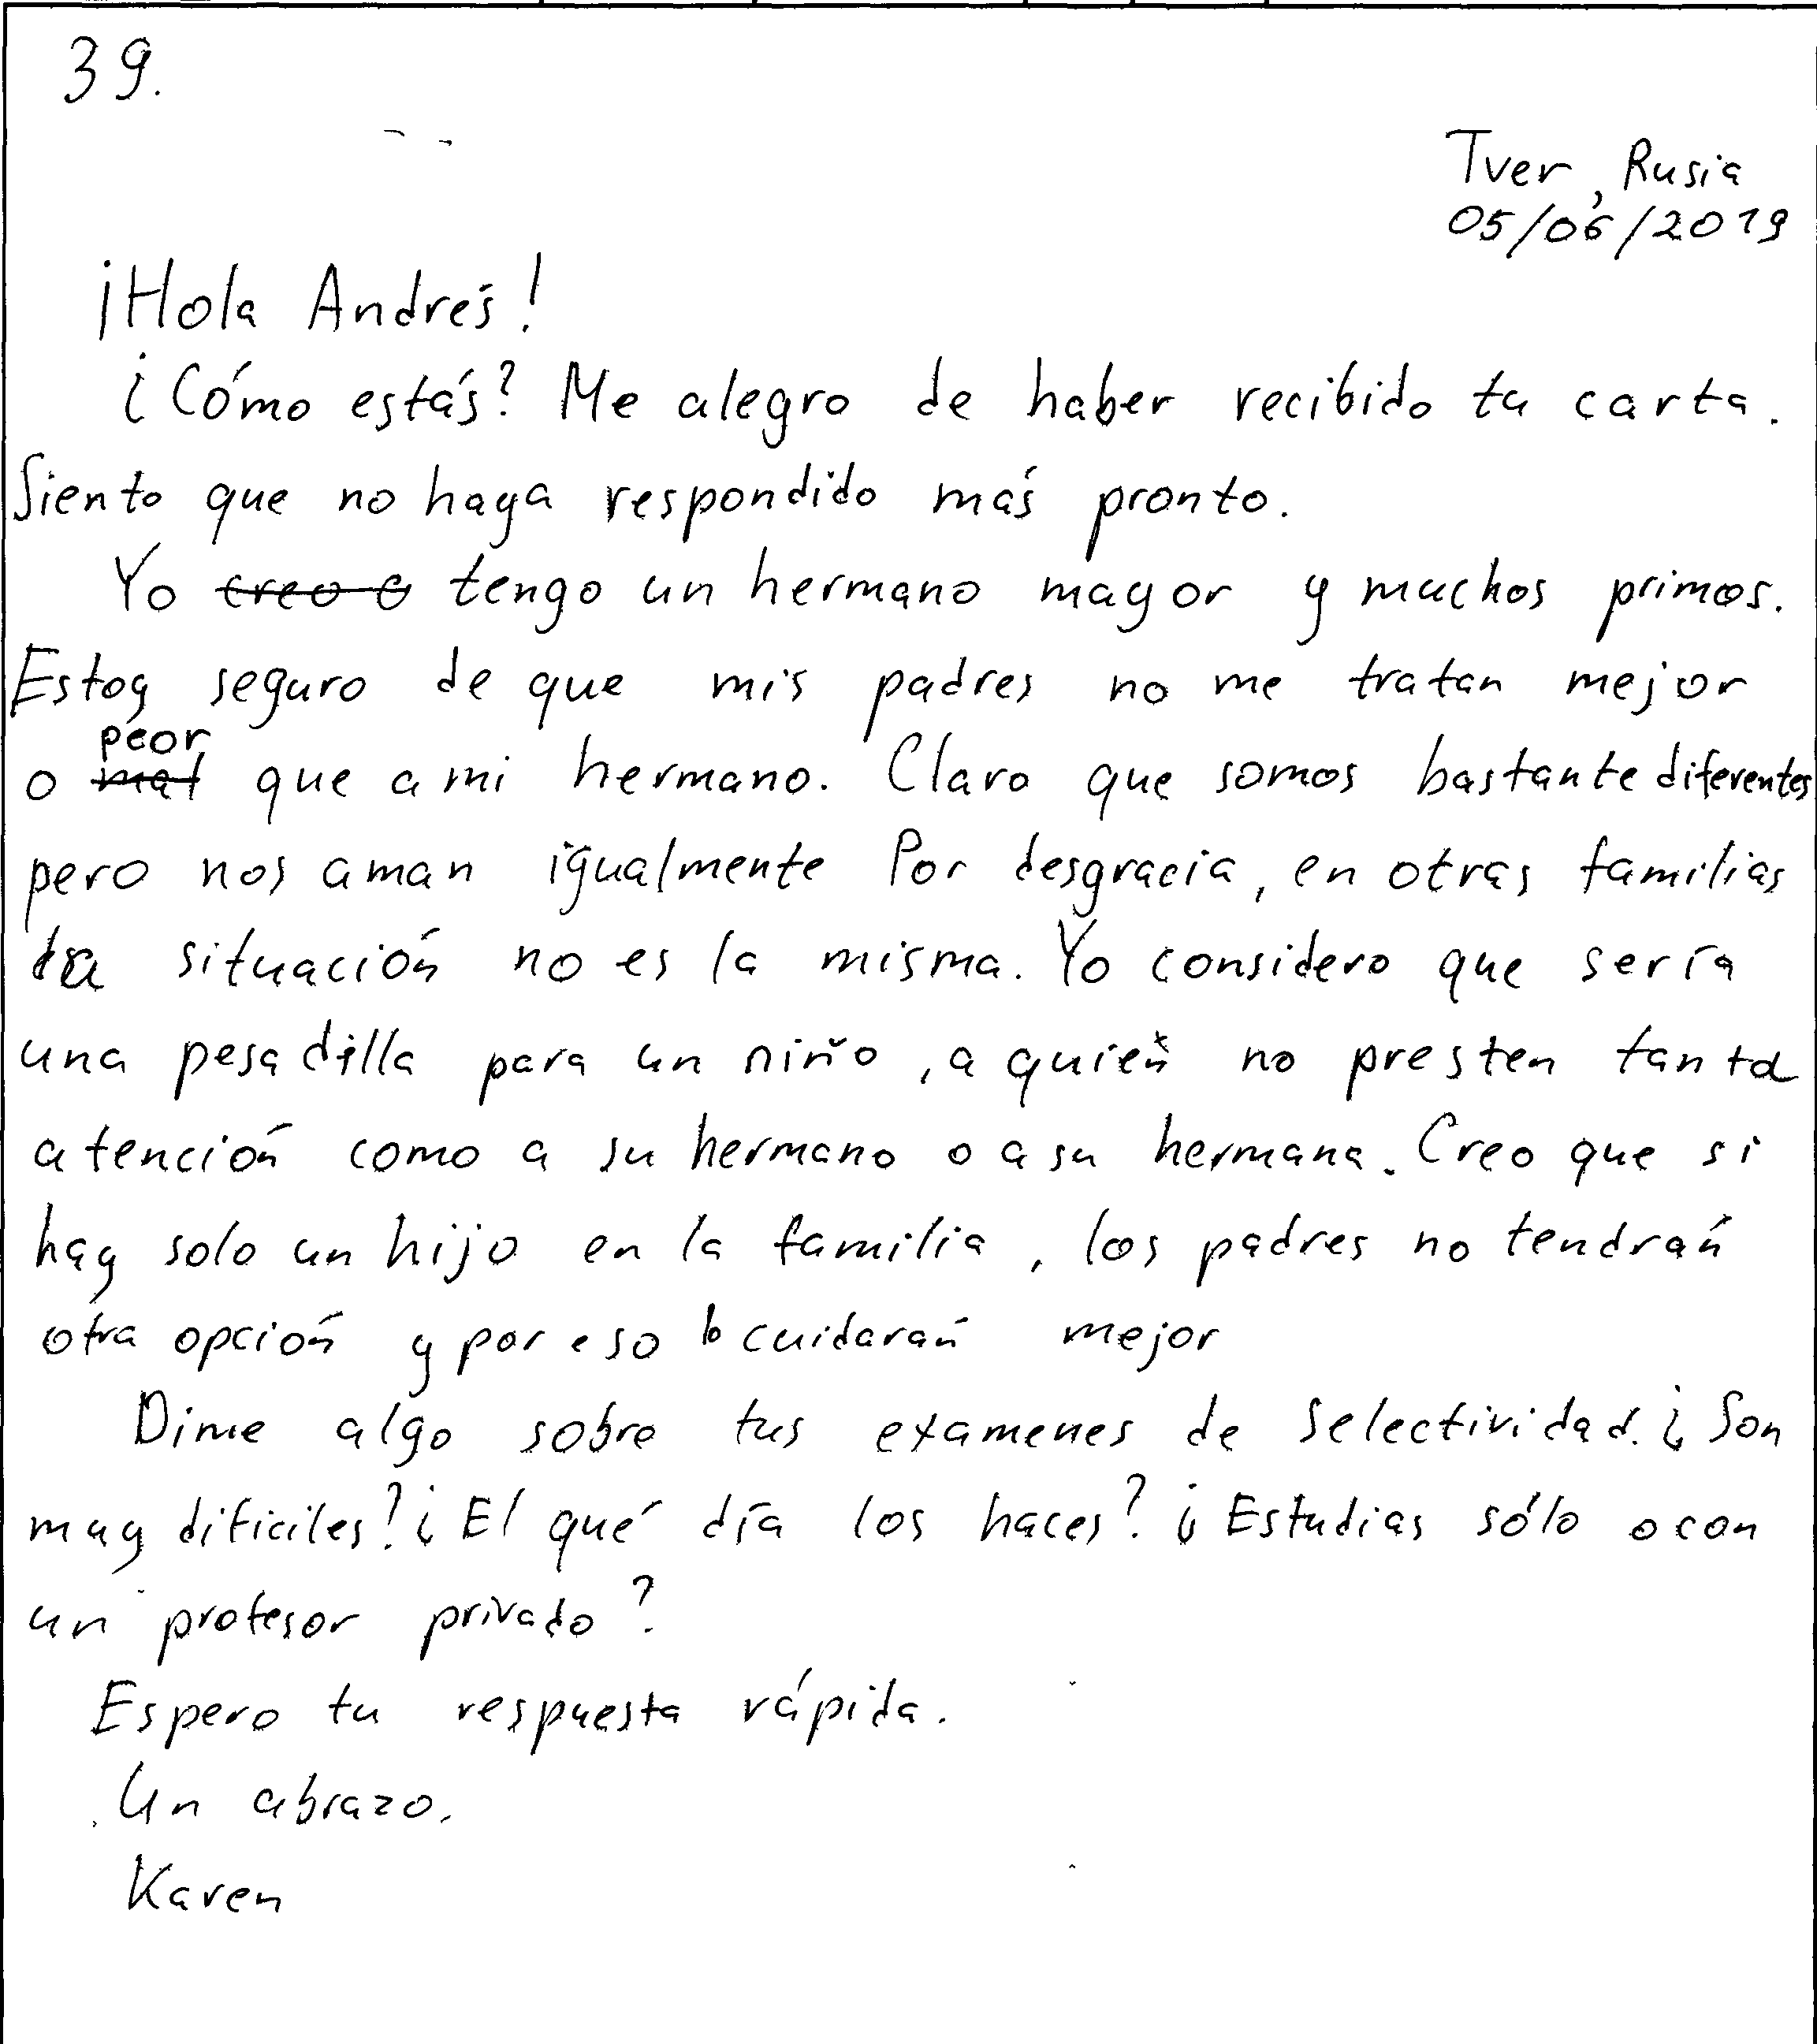 39.
Tver, Rusia
05/06/2019
¡Hola Andrés!
¿Cómo estás? Me alegro de haber recibido tu carta.
Siento que no haya respondido más pronto.
Yo creo a tengo un hermano mayor y muchos primos.
Estoy seguro de que mis padres no me tratan mejor
peor
o mal que a mi hermano. Claro que somos bastante diferentes
pero nos aman igualmente Por desgracia, en otras familias
la situación no es la misma. Yo considero que sería
una pesadilla para un niño, a quien no presten tanta
atención como a su hermano o a su hermana. Creo que si
hay solo un hijo en la familia, los padres no tendrán
otra opción y por eso lo cuidarán mejor
Dime algo sobre tus examenes de Selectividad. ¿Son
muy dificiles? ¿El qué día los haces? ¿Estudias sólo o con
un profesor privado?
Espero tu respuesta rápida.
Un abrazo.
Karen